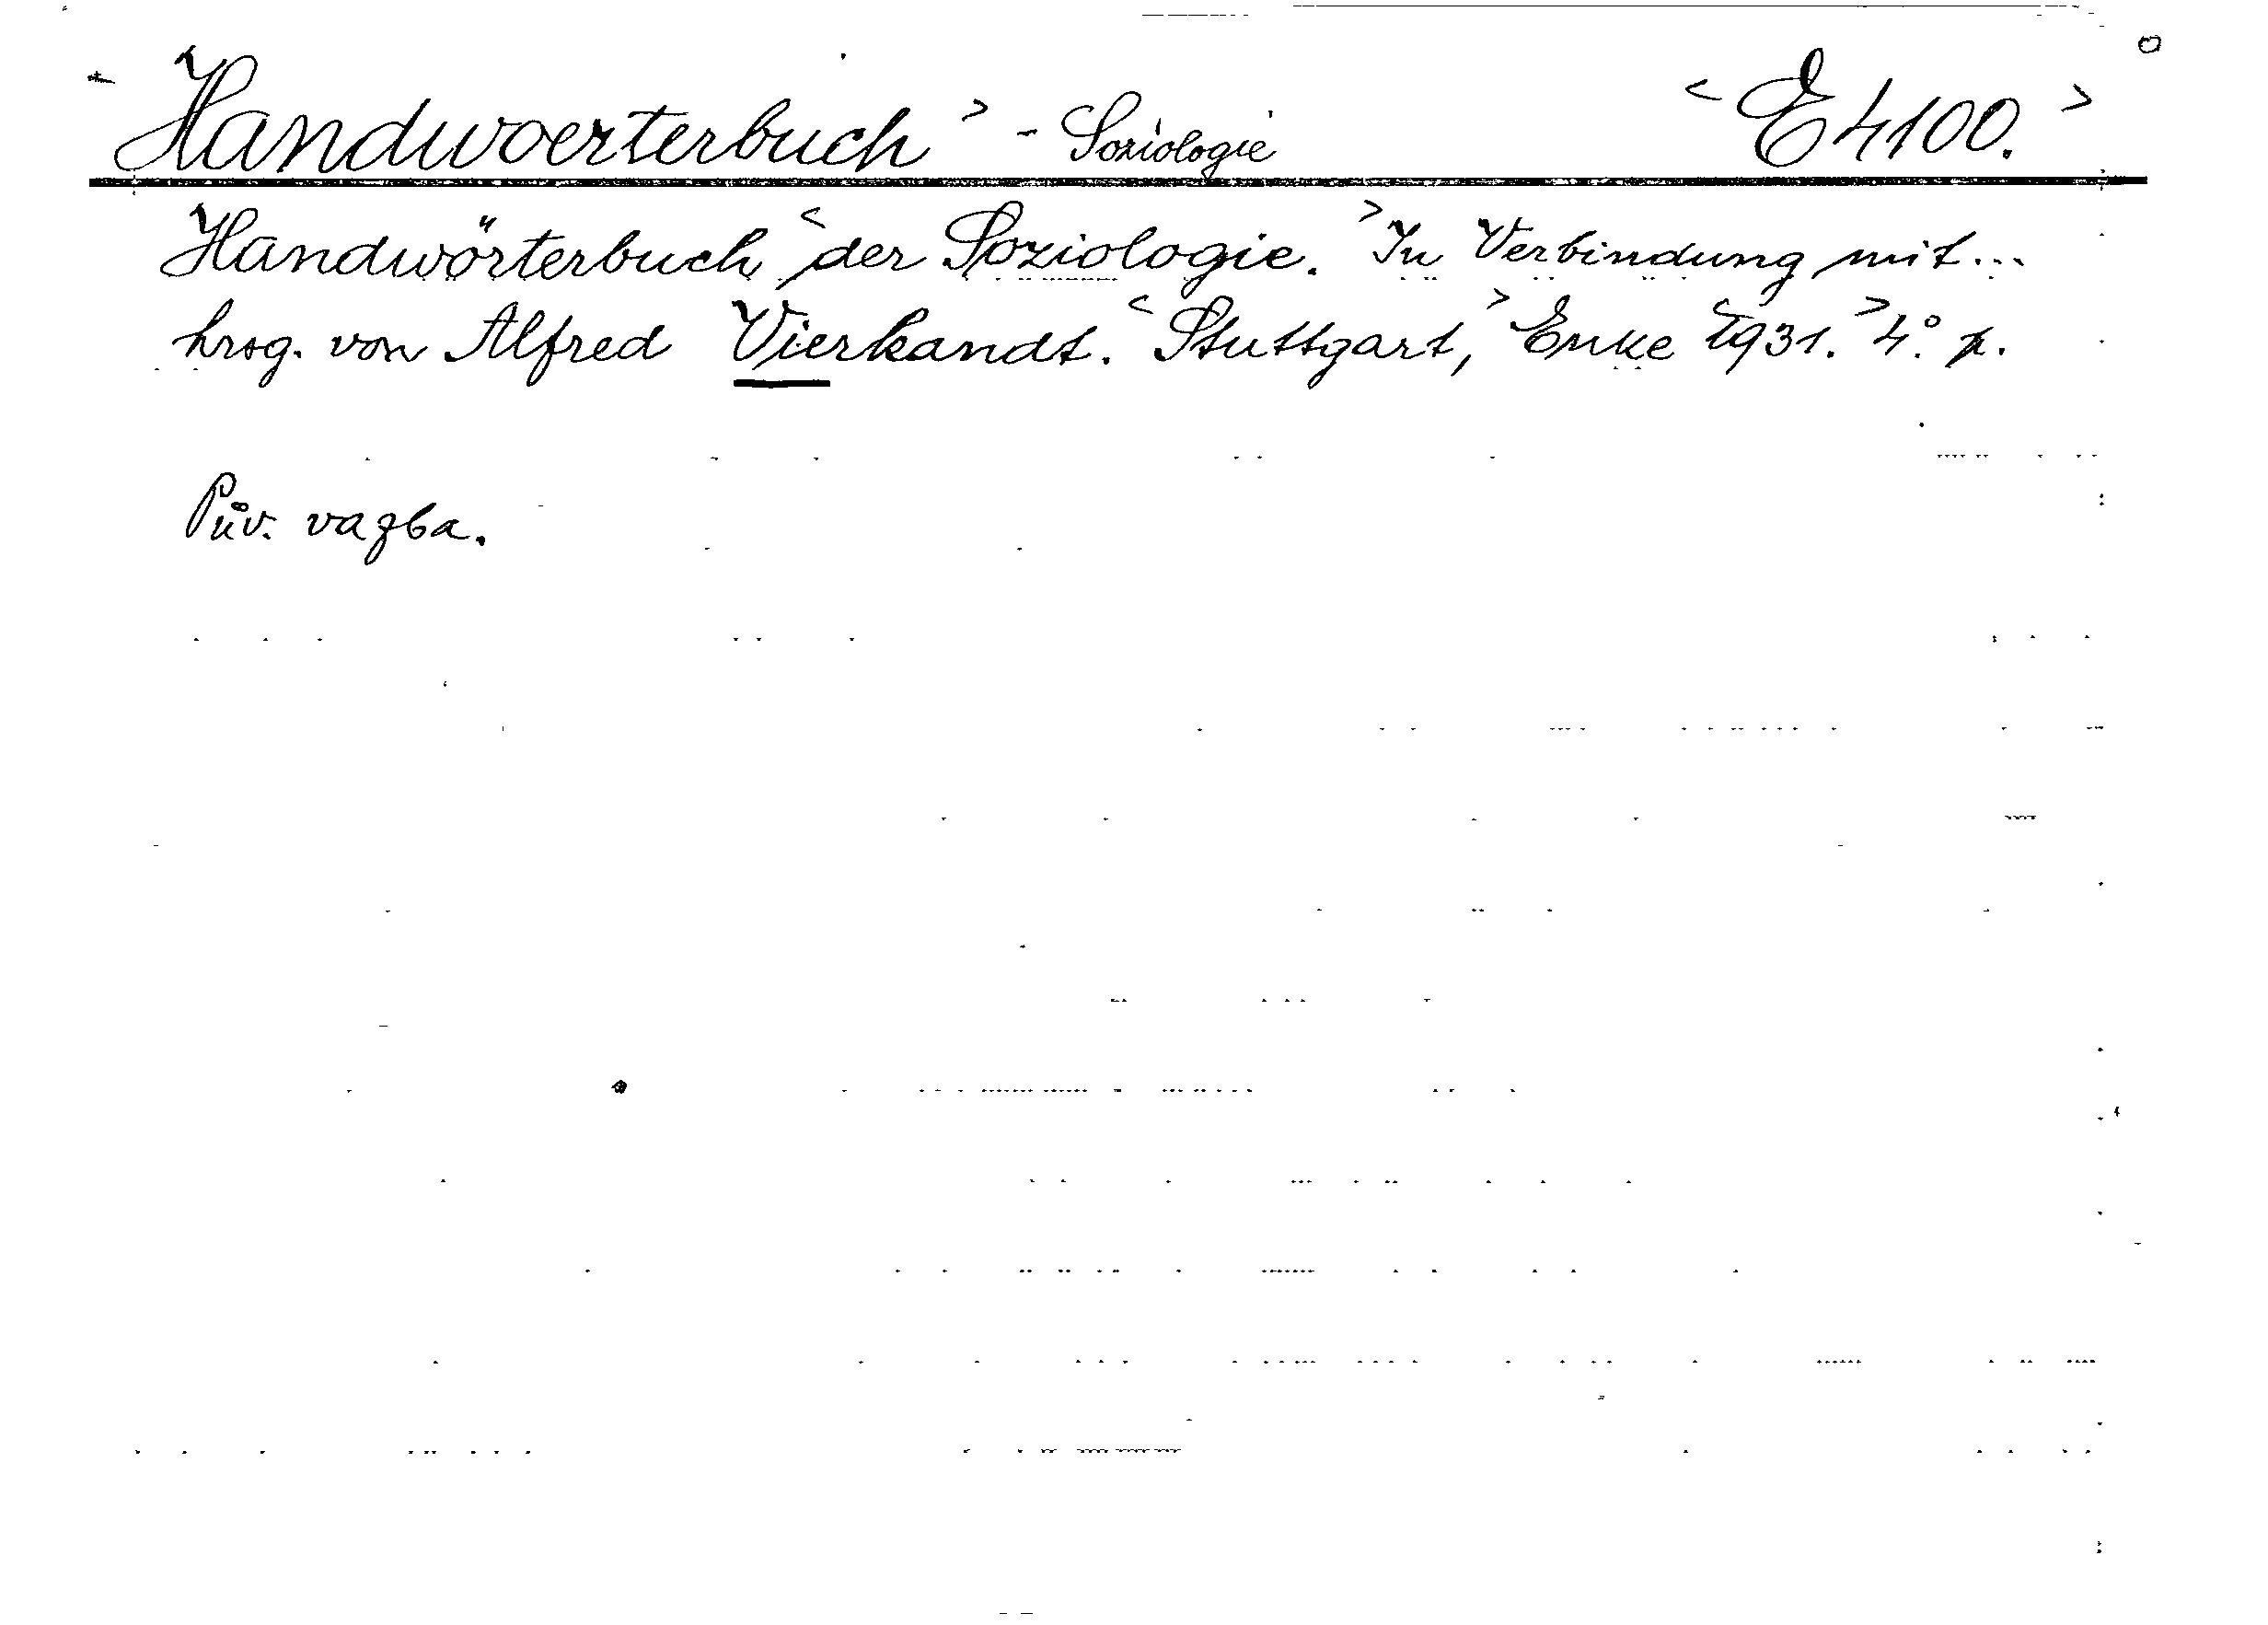 Handwoerterbuch > - Soziologie < E 4100. >
Handwörterbuch < der Soziologie. > In Verbindung mit...
hrsg. von Alfred Vierkandt. < Stuttgart, > Enke < 1931. > 4.° p.
Pův. vazba.